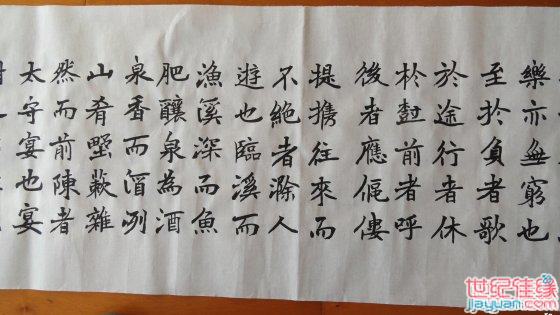 樂亦無窮也
至於負者歌
於途行者休
扵尌前者呼
後者應傴僂
提携往來而
不絶者滁人
遊也臨溪而
漁溪深而魚
肥釀泉為酒
泉香而酒洌
山肴埜蔌雜
然而前陳者
太守宴也宴
世纪佳缘
jiayuan.com